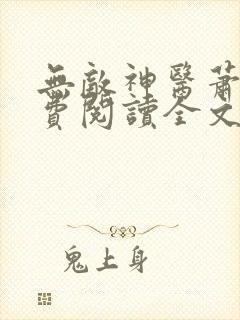 無敵神醫蕭
費閱讀全文
鬼上身